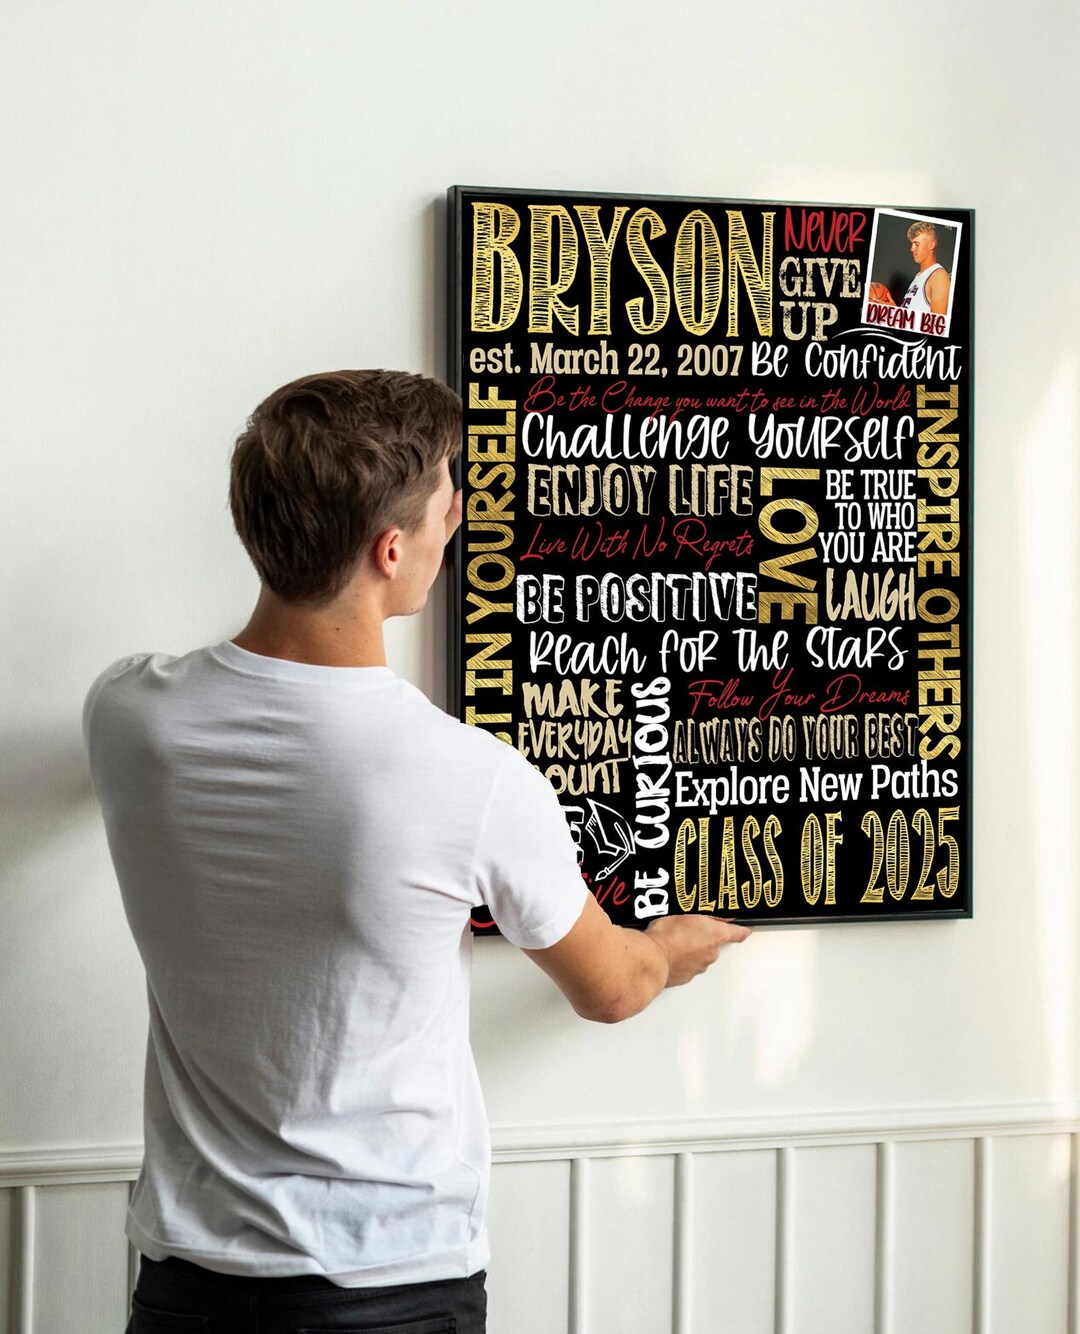 BRYSON
NEVER
GIVE
UP
DREAM BIG
est. March 22, 2007
Be Confident
Be the Change you want to see in the World
Challenge Yourself
IN YOURSELF
ENJOY LIFE
LOVE
BE TRUE
TO WHO
YOU ARE
INSPIRE OTHERS
Live With No Regrets
BE POSITIVE
LAUGH
Reach for the Stars
MAKE
EVERYDAY
BE CURIOUS
Follow Your Dreams
ALWAYS DO YOUR BEST
Explore New Paths
CLASS OF 2025